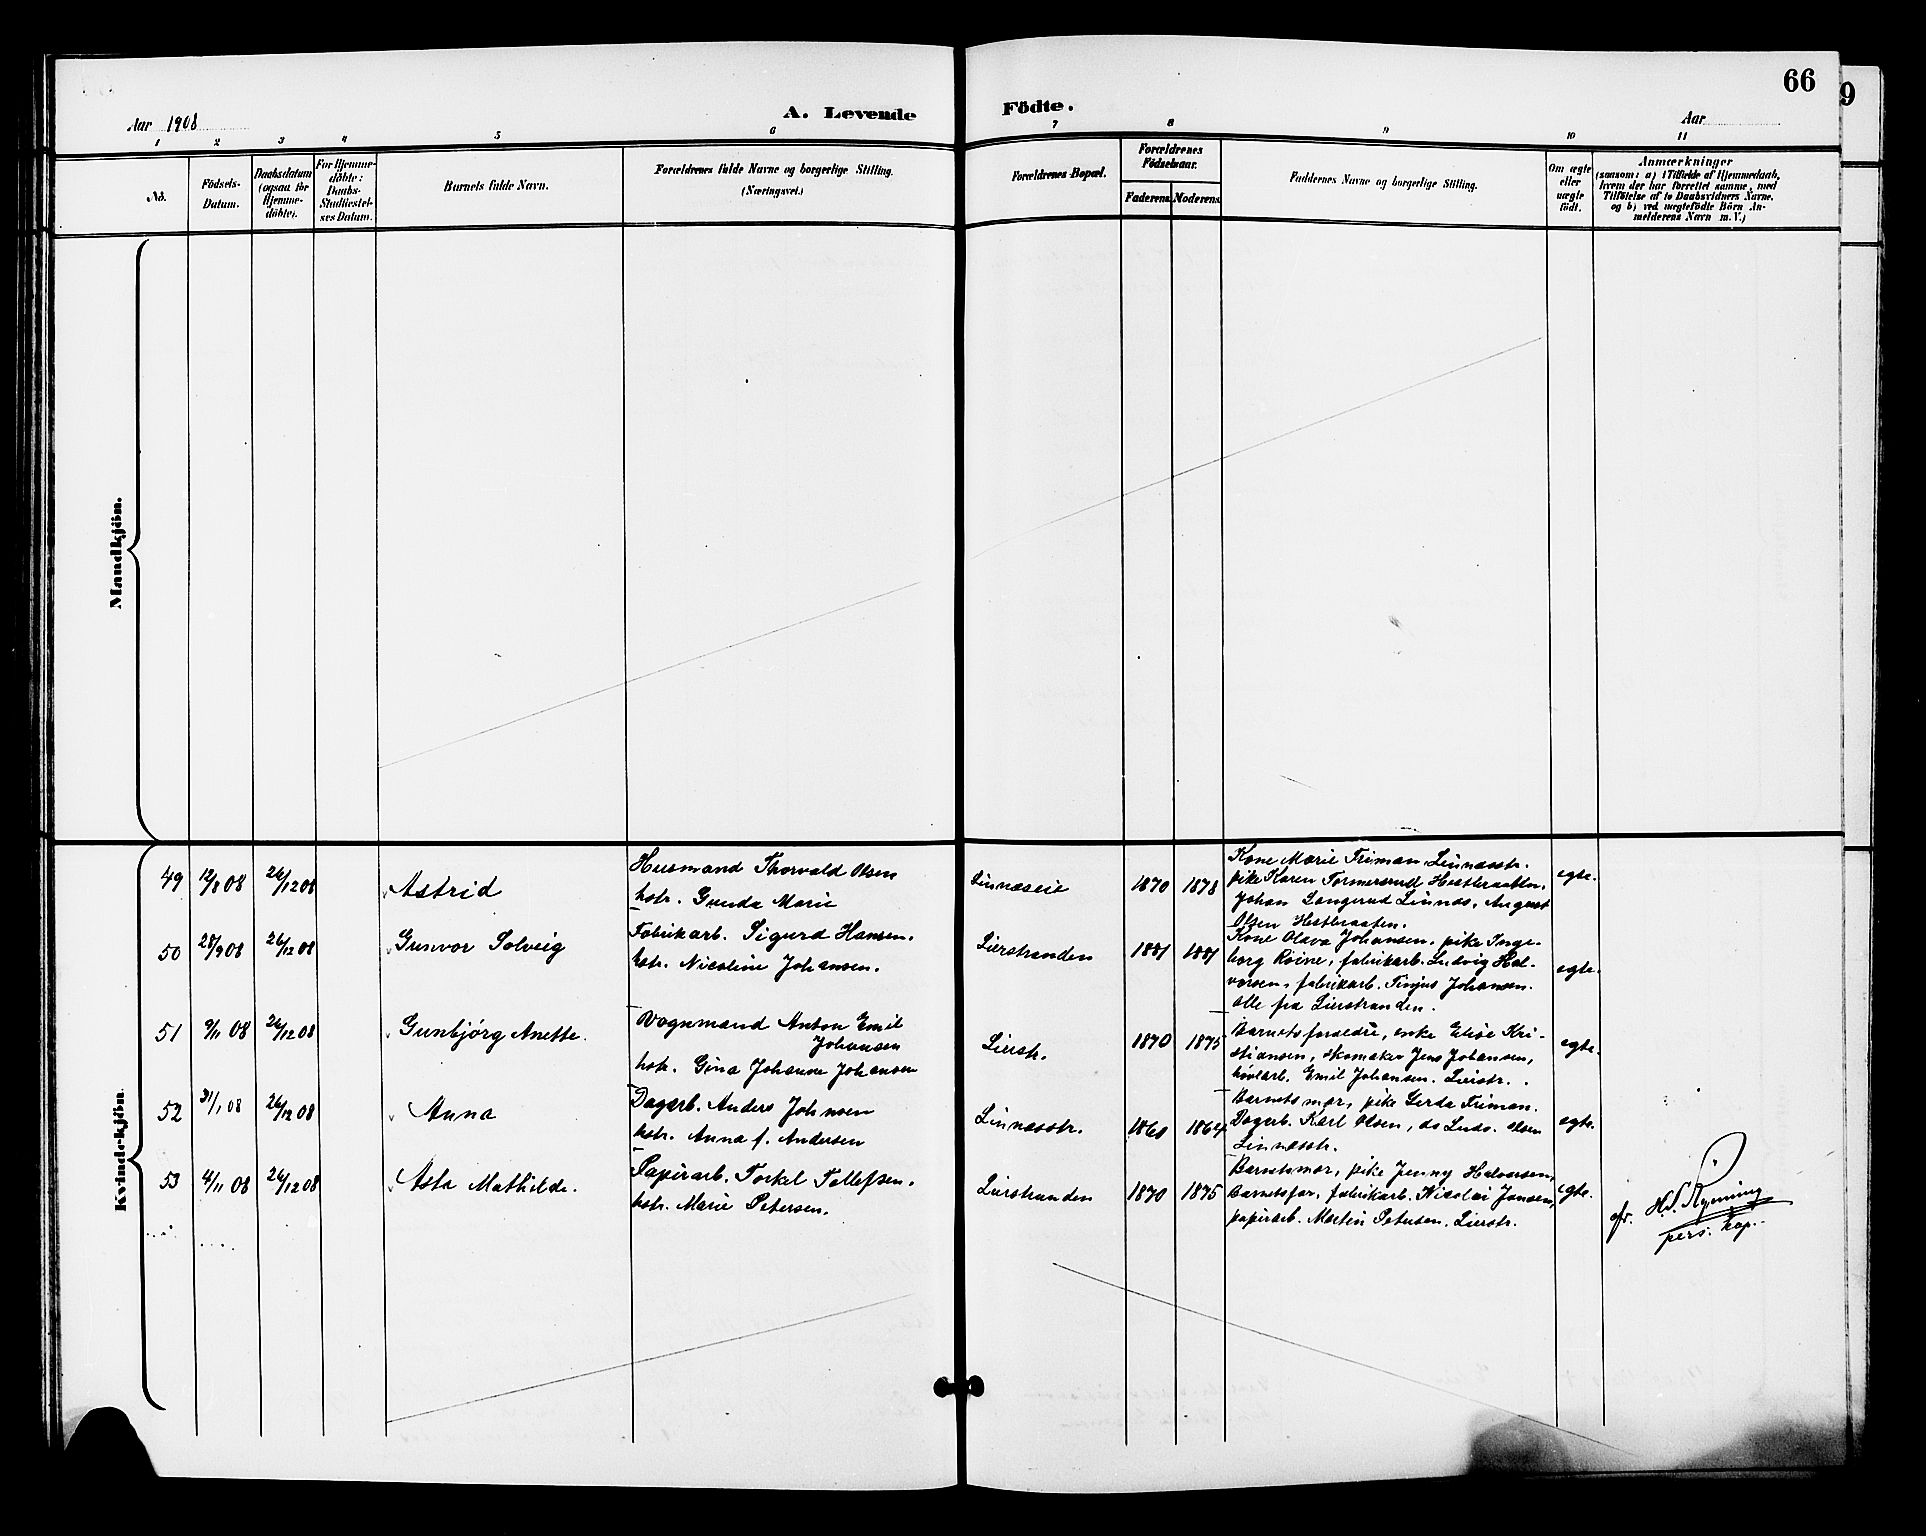 66
9
Aar 1908
A. Levende
Födte.
Aar
1 2 3 4 5 6 7 8 9 10 11
No.
Födsels-
Datum.
Daabsdatum
(ogsaa for
Hjemme-
döbte).
For Hjemme-
döbte:
Daabs-
Stadfæstel-
ses Datum.
Barnets fulde Navn.
Forældrenes fulde Navne og borgerlige Stilling.
(Næringsvei.)
Forældrenes Bopæl.
Forældrenes
Födselsaar.
Faderens Moderens
Faddernes Navne og borgerlige Stilling.
Om ægte
eller
uægte
födt.
Anmærkninger
(saasom: a) i Tilfælde af Hjemmedaab,
hvem der har forrettet samme, med
Tilföielse af to Daabsvidners Navne,
og b) ved uægtefödte Börn An-
melderens Navn m. V.)
Mandkjön.
Kvindekjön.
49 12/8 08 26/12 08 Astrid
Husmand Thorvald Olsen
hstr. Gunda Marie
Linnæseie 1870 1878
Kone Marie Friman, Linnæsstr.
pike Karen Hestbraatln.
Johan Langerud Linnæs, August
Olsen Hestbraaten.
egte.
50 28/9 08 26/12 08 Gunvor Solveig
Fabrikarb. Sigurd Hansen.
hstr. Nicoline Johansen.
Lierstranden 1881 1881
Kone Olava Johansen, pike Inge-
borg Roine, fabrikarb. Ludvig Hal-
vorsen, fabrikarb. Johansen.
alle fra Lierstranden.
egte.
51 9/11 08 26/12 08 Gunbjörg Anette.
Vognmand Anton Emil
Johansen
hstr. Gina Johanne Johansen
Lierstr. 1870 1875
Barnets foreldre, enke Elise Kri-
stiansen, skomaker Jens Johansen,
hövlarb. Emil Johansen. Lierstr.
egte.
52 31/1 08 26/12 08 Anna
Dagarb. Anders Johnsen
hstr. Anna f. Andersen
Linnæsstr. 1860 1864
Barnets mor, pike Gerda Friman.
Dagarb. Karl Olsen, do Ludv. Olsen
Linnæsstr.
egte.
53 4/11 08 26/12 08 Asta Mathilde.
Papirarb. Torkel Tollefsen.
hstr. Marie Petersen.
Lierstranden 1870 1875
Barnets mor, pike Jenny Halvorsen,
Barnets far, fabrikarb. Nicolai Jansen,
papirarb. Martin Petersen. Lierstr.
egte.
H. S. Ryening
pers. kap.